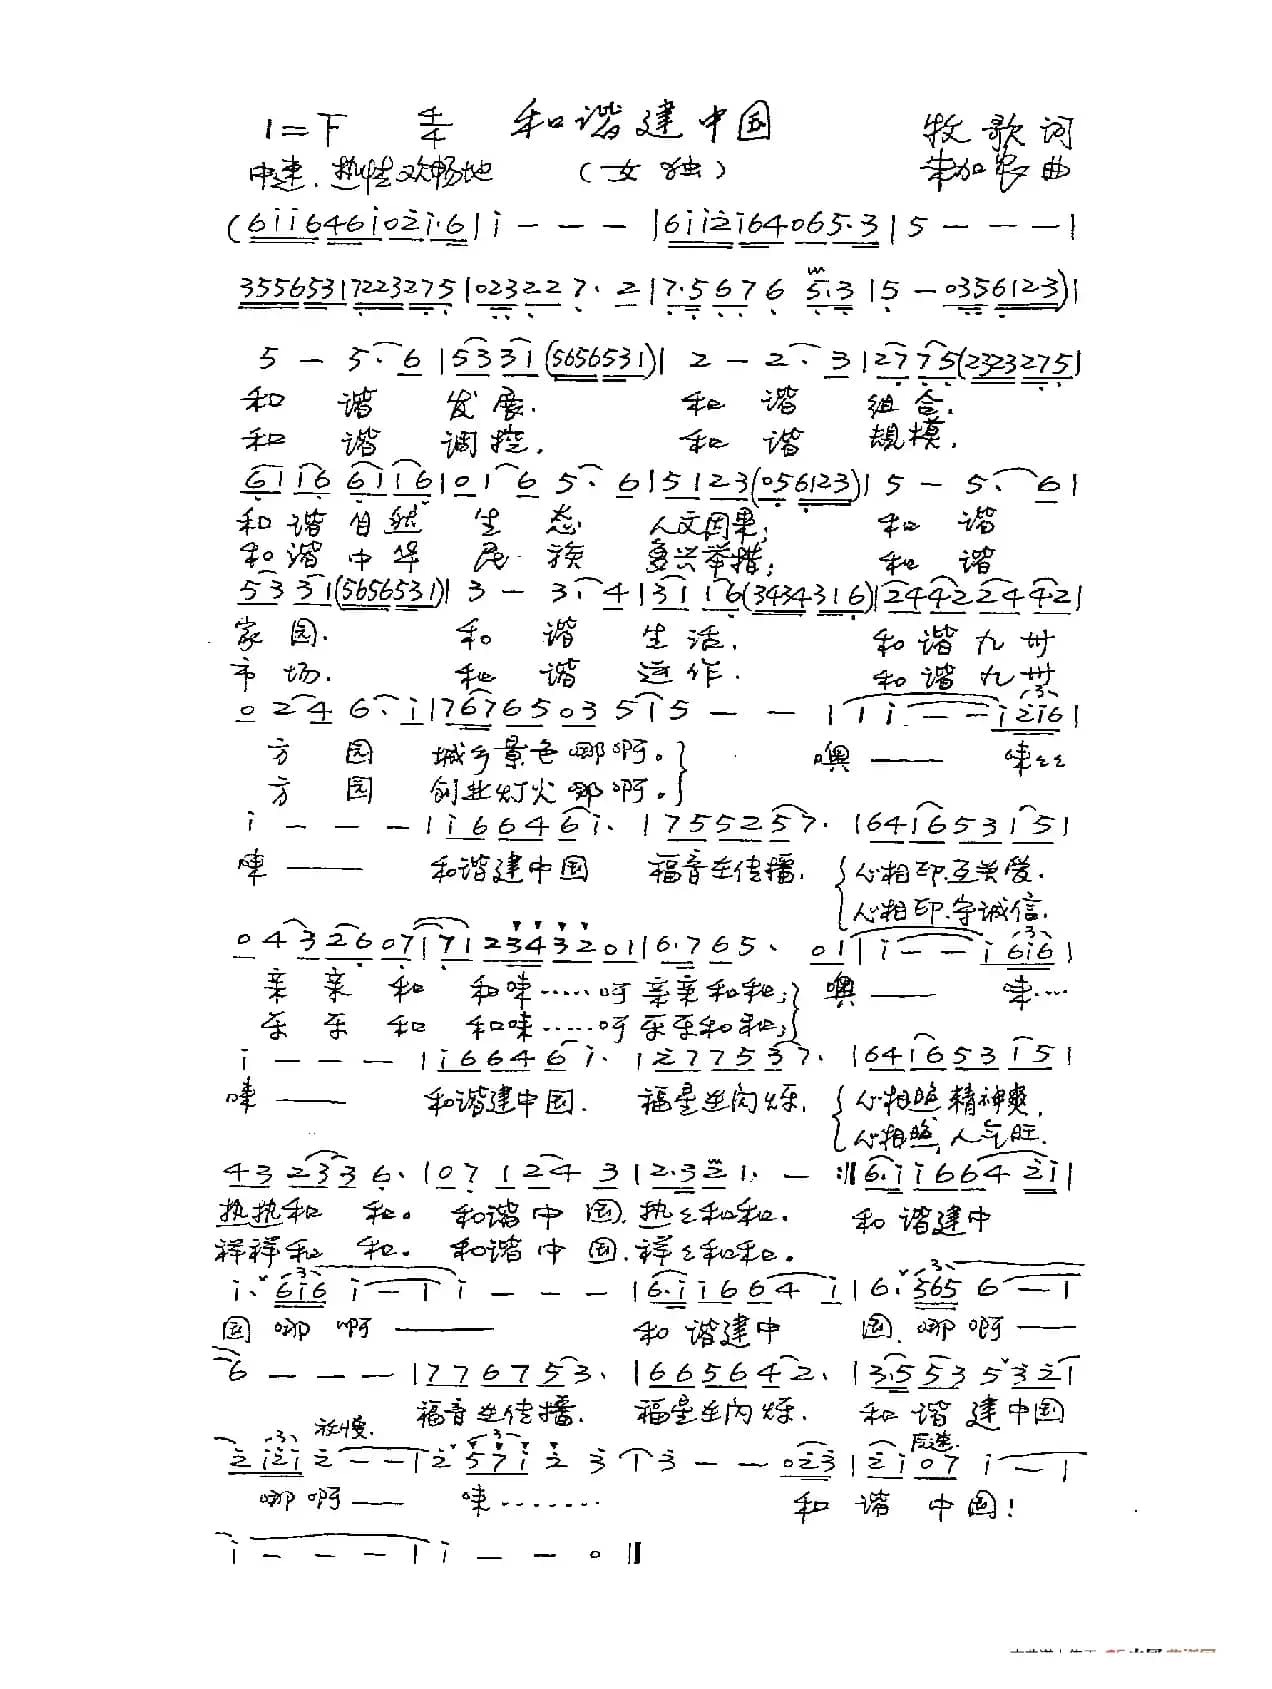 1=F 4/4 和谐建中国 牧歌词
中速.热情欢畅地 (女独) 朱加农曲
(6i i6 46i 02i·6|i - - - |6i i2 i64 065·3|5 - - - |
3556531 7223275|023227· 2|7·5676 5·3|5 - 0356123)|
5 - 5· 6|533 1(5656531)|2 - 2· 3|2775(2323275)|
和 谐 发 展. 和 谐 组 合.
和 谐 调 控. 和 谐 规 模.
6116 6116|016 5· 6|5123(056123)|5 - 5· 6|
和谐自然 生 态 人文因果; 和 谐
和谐中华 民 族 复兴举措; 和 谐
533 1(5656531)|3 - 3· 4|3116(3434316)|2442 2442|
家园. 和 谐 生 活. 和谐九州
市场. 和 谐 运 作. 和谐九州
0246· i|767650 3 5i5 - - | i - - i 2i6|
方 园 城乡景色哪啊。 噢—— 唻
方 园 创业灯火哪啊。
i - - - |i6646i· |755257· |64i653i5|
唻—— 和谐建中国 福音在传播. 心相印.互关爱.
心相印.守诚信.
043260717123432 01|6·765· 01|i - - i 6i6|
亲 亲 和 和唻……呵亲亲和和; 噢—— 唻……
乐 乐 和 和唻……呵乐乐和和;
i - - - |i6646i· |277537· |64i653i5|
唻—— 和谐建中国. 福星在闪烁. 心相照精神爽,
心相照,人气旺.
432336· |071243|2·321· - :‖6·i i6642i|
热热和 和。和谐中国.热和和. 和谐建中
祥祥和 和。和谐中国.祥和和。
i· 6i6 i - |i - - - |6·i i664 i|6· 565 6 - |
国哪 啊—— 和谐建中 国.哪啊——
6 - - - |776753· |665642· |3·553532 1|
福音在传播. 福星在闪烁. 和谐建中国
放慢.
2 i2i 2 - - |2 57i2 3|3 - - 023|2i07 i - |
哪啊—— 唻…… 和 谐 中 国!
i - - - |i - - 0‖